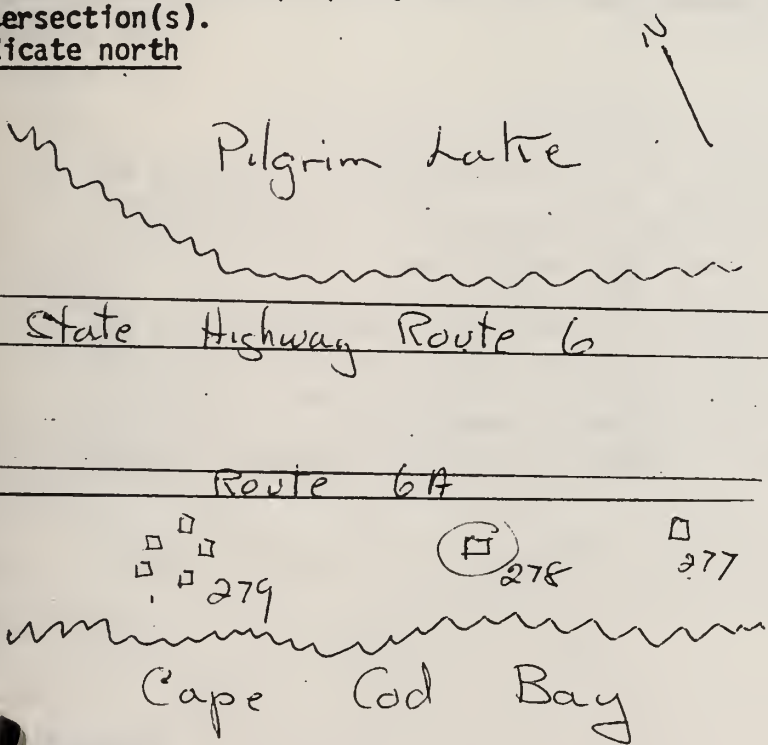 ersection(s).
icate north
N
Pilgrim Lake
State Highway Route 6
Route 6A
279
278
277
Cape Cod Bay